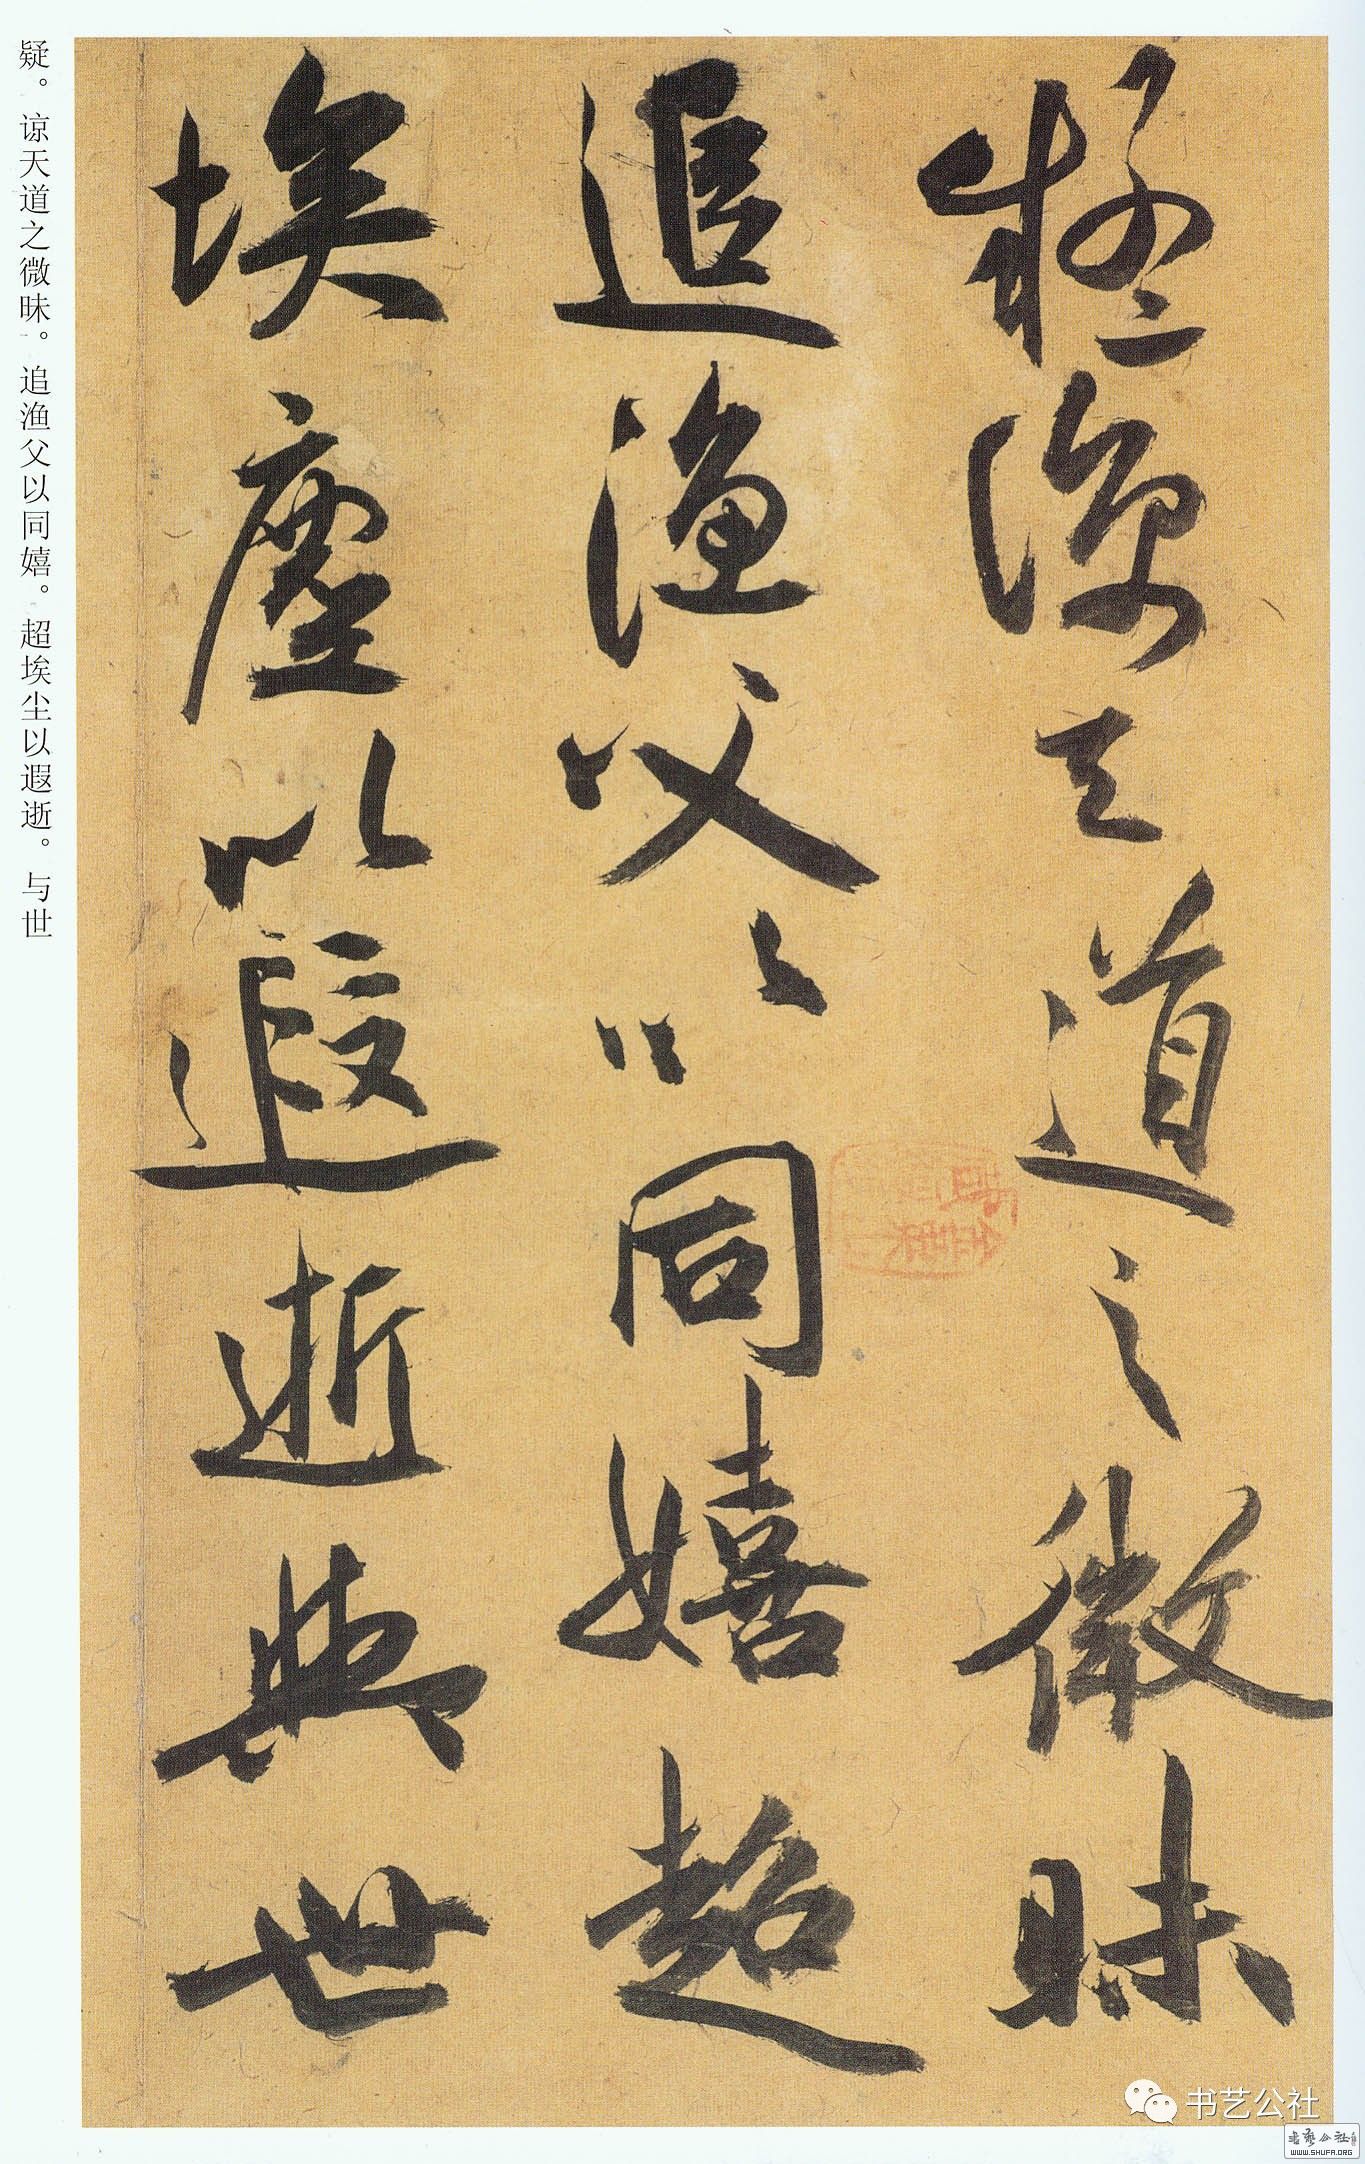 疑谅天道之微昧
追渔父以同嬉超
埃塵以遐逝與世
疑。谅天道之微昧。追渔父以同嬉。超埃尘以遐逝。与世
书艺公社
书艺公社
WWW.SHUFA.ORG